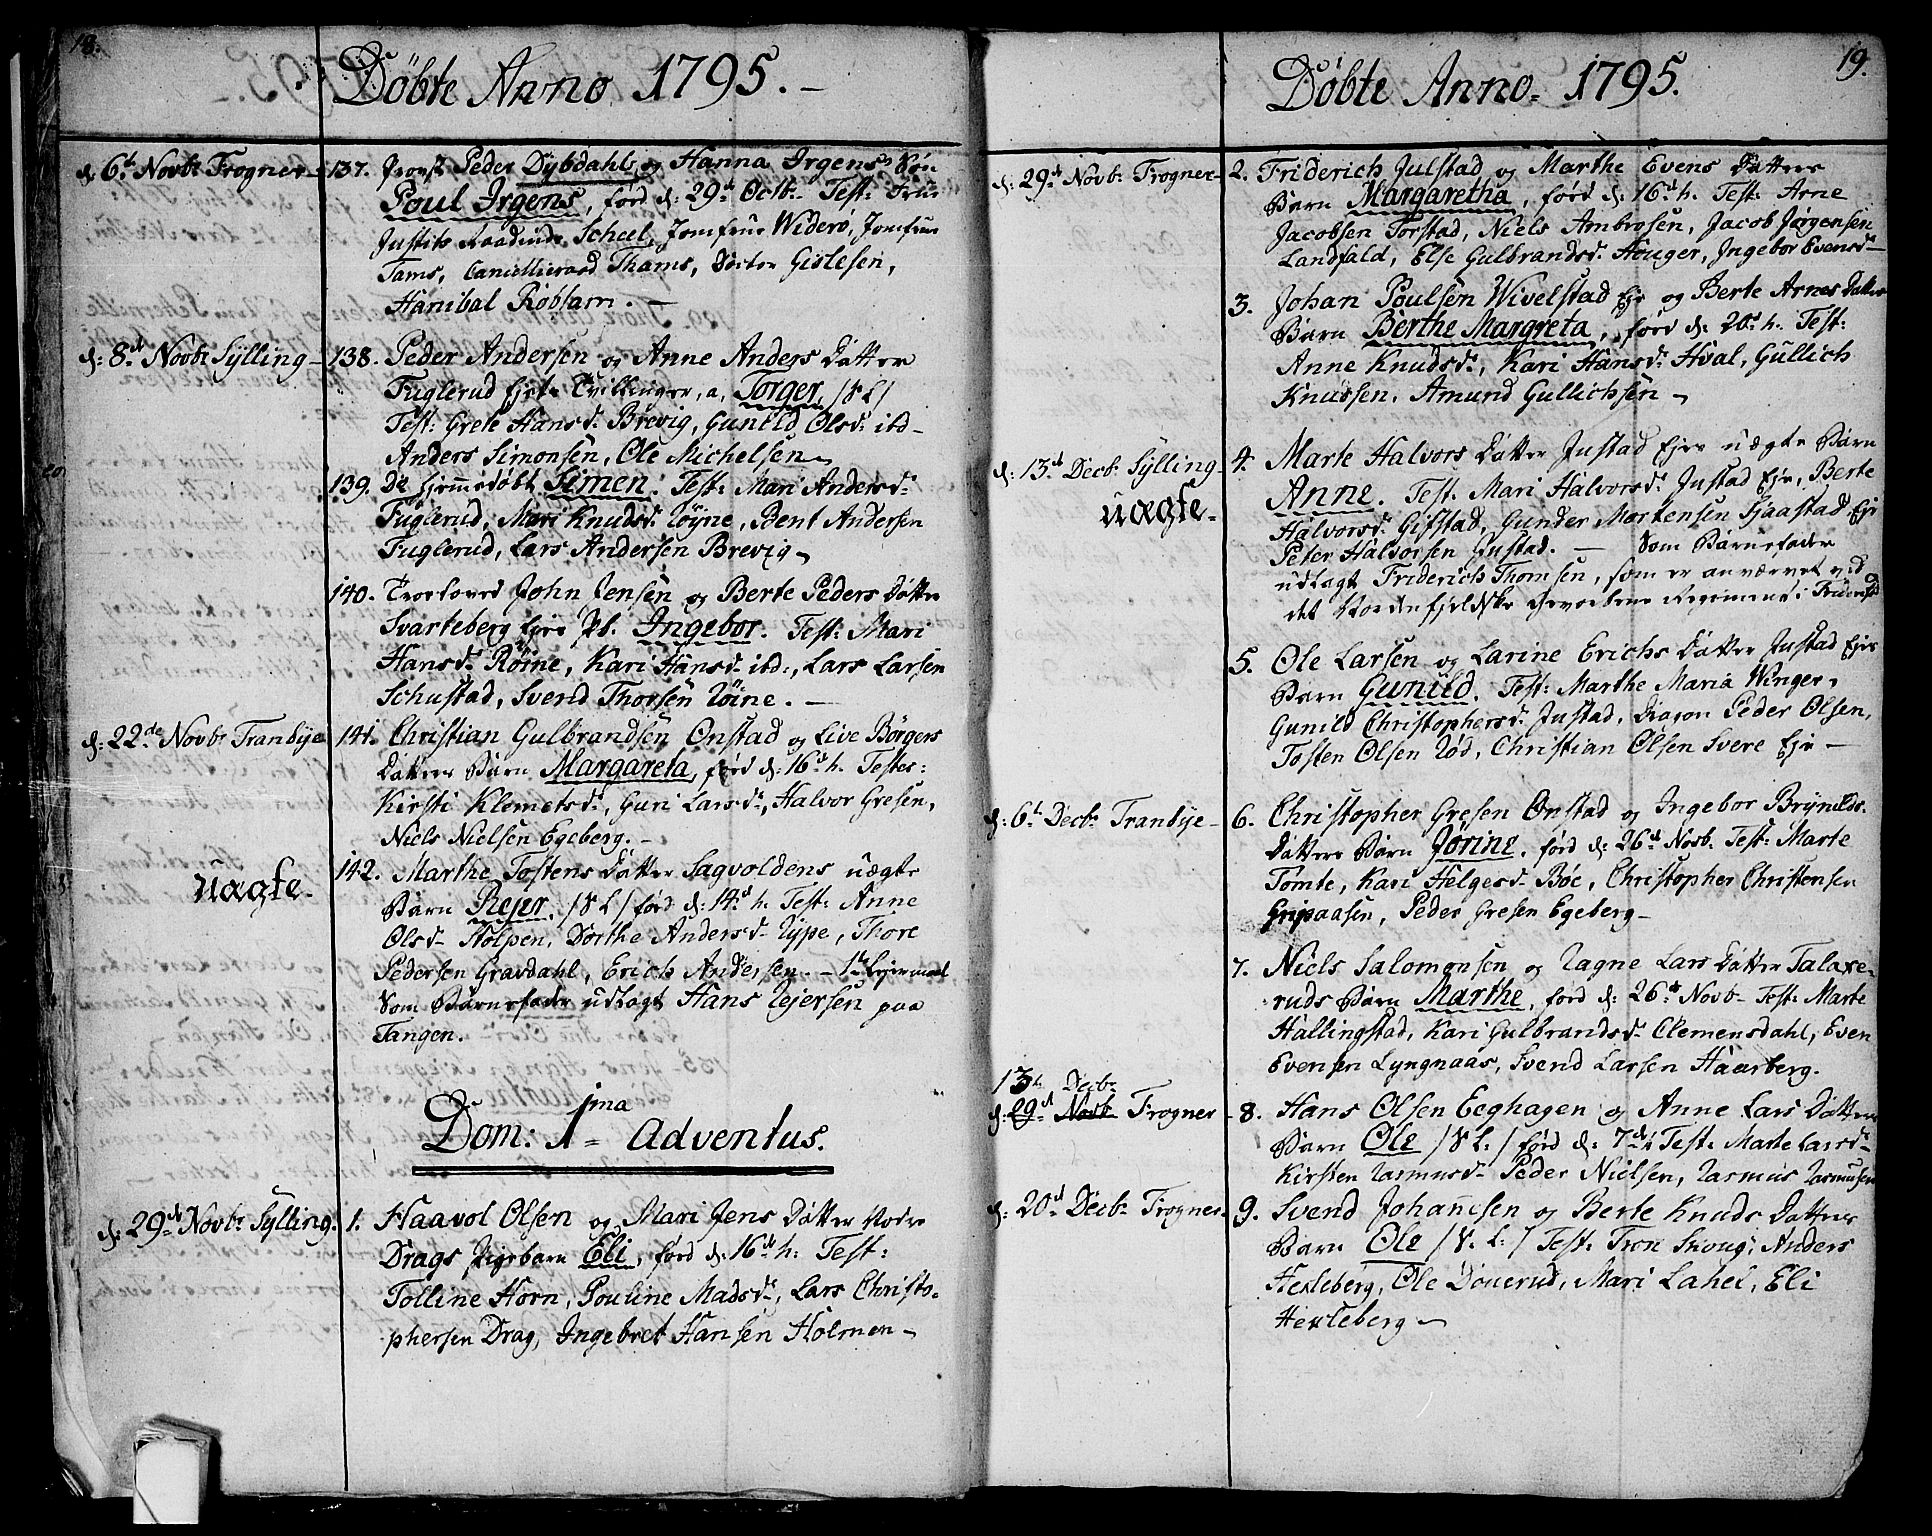 18.
Döbte Anno 1795.
d: 6te Novbr Trogner 137. Provst Peder Dybdahls og Hanna Irgens Sön
Poul Irgens, förd d: 29d Octb. Test: Frue
Justits Raadinde Scheel, Jomfrue Widerö, Jomfrue
Tams, Cancellieraad Thams, Doctor Gislesen,
Hanibal Röbsam.
d: 8d Novbr Sylling 138. Peder Andersen og Anne Anders Datter
Fuglerud Eje Tvillinger, a, Torger, /S L/
Test: Grete Hansd. Brevig, Gunild Olsd. ibd
Anders Simonsen, Ole Michelsen
139. De hjemmedöbt Simen. Test: Mari Andersd.
Fuglerud, Mari Knudsd. Röyne, Bent Andersen
Fuglerud, Lars Andersen Brevig
140. Trorloved John Jensen og Berte Peders Datter
Svarteberg Eje Pb. Ingebor. Test: Mari
Hansd. Röine, Kari Hansd. ibd:, Lars Larsen
Schustad, Svend Thorsen Röine.
d: 22de Novbr Tranbye 141. Christian Gulbrandsen Onstad og Live Börgers
Datters Barn Margareta, förd d: 16d h. Testes:
Kirsti Klemetsd., Guri Larsd., Halvor Gresen,
Niels Nielsen Egeberg.
uægte. 142. Marthe Tostens Datter Sagvoldens uægte
Barn Rejer, /S L/ förd d: 14d h. Test: Anne
Olsd. Holpen, Dorthe Andersd. Rype, Thore
Pedersen Gravdahl, Erich Andersen. - 1te Lejermaal
Som Barnefader udlagt Hans Rejersen paa
Tangen.
Dom: 1ma Adventus.
d: 29d Novbr Sylling. 1. Haavol Olsen og Mari Jens Datter Nodre
Drags Pigebarn Eli, förd d: 16d h: Test:
Tolline Horn, Pouline Madsd., Lars Christo-
phersen Drag, Ingebret Hansen Holmen
19.
Döbte Anno. 1795.
d: 29d Novbr Trogner 2. Friderich Julstad og Marthe Evens Datters
Barn Margaretha, förd d: 16d h. Test: Arne
Jacobsen Torstad, Niels Ambrosen, Jacob Jørgensen
Landfald, Else Gulbrandsd. Houger, Ingebor Evensd.
3. Johan Poulsen Wivelstad Eje og Berte Arnes Datter
Barn Berthe Margreta, förd d: 20d h. Test:
Anne Knudsd., Kari Hansd. Hval, Gullich
Knussen, Amund Gullichsen
d: 13d Decbr Sylling 4. Marte Halvors Datter Justad Eje uægte Barn
uægte. Anne. Test. Mari Halvorsd. Justad Eje, Berte
Halvorsd. Gifstad, Gunder Mortensen Sjaastad Eje
Peter Halvorsen Justad. - Som Barnefader
udlagt Friderich Thomsen, som er anværvet ved
det Nordenfjeldske Gevorbene Regiment i
5. Ole Larsen og Larine Erichs Datter Justad Ejes
Barn Gunild. Test: Marthe Maria Winger,
Gunild Christophersd. Justad, Diacon Peder Olsen,
Tosten Olsen Röd, Christian Olsen Svere Eje
d: 6te Decbr Tranbye 6. Christopher Gresen Onstad og Ingebor Brynilds-
Datters Barn Jörine, förd d: 26d Novb. Test: Marte
Tomte, Kari Helgesd. Böe, Christopher Christensen
Gripaasen, Peder Gresen Egeberg
7. Niels Salomonsen og Ragne Lars Datter Talase-
ruds Barn Marthe, förd d: 26d Novb. Test: Marte
Hallingstad, Kari Gulbrandsd. Clemensdahl, Even
Evensen Lyngnaas, Svend Larsen Haarberg.
13de Decbr
d: 29d Novb Trogner 8. Hans Olsen Eeghagen og Anne Lars Datters
Barn Ole /S L./ förd d: 7d h Test: Marte Larsd.
Kirsten Rasmusd. Peder Nielsen, Rasmus Rasmussen
d: 20d Decbr Trogner 9. Svend Johannesen og Berte Knuds Datters
Barn Ole /S. L:/ Test: Tron Skoug, Anders
Hexleberg, Ole Döuerud, Mari Lahel, Eli
Hexleberg